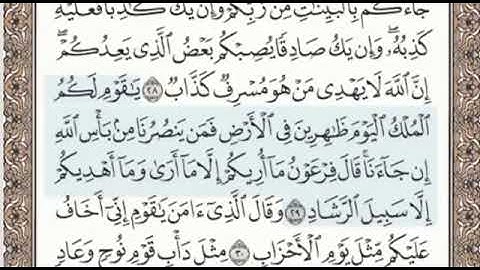 جَآءَكُم بِٱلْبَيِّنَٰتِ مِن رَّبِّكُمْ وَإِن يَكُ كَٰذِبًا فَعَلَيْهِ
كَذِبُهُۥ وَإِن يَكُ صَادِقًا يُصِبْكُم بَعْضُ ٱلَّذِى يَعِدُكُمْ
إِنَّ ٱللَّهَ لَا يَهْدِى مَنْ هُوَ مُسْرِفٌ كَذَّابٌ ٢٨ يَٰقَوْمِ لَكُمُ
ٱلْمُلْكُ ٱلْيَوْمَ ظَٰهِرِينَ فِى ٱلْأَرْضِ فَمَن يَنصُرُنَا مِنۢ بَأْسِ ٱللَّهِ
إِن جَآءَنَا قَالَ فِرْعَوْنُ مَآ أُرِيكُمْ إِلَّا مَآ أَرَىٰ وَمَآ أَهْدِيكُمْ
إِلَّا سَبِيلَ ٱلرَّشَادِ ٢٩ وَقَالَ ٱلَّذِىٓ ءَامَنَ يَٰقَوْمِ إِنِّىٓ أَخَافُ
عَلَيْكُم مِّثْلَ يَوْمِ ٱلْأَحْزَابِ ٣٠ مِثْلَ دَأْبِ قَوْمِ نُوحٍ وَعَادٍ